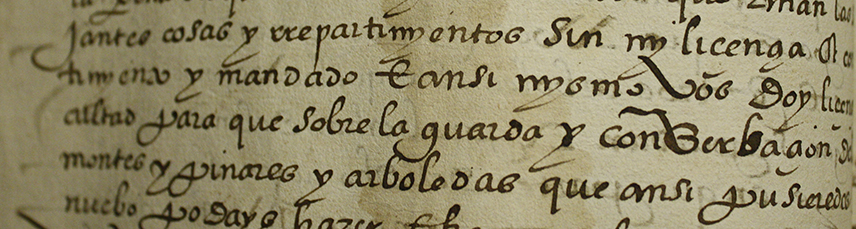 que
jantes cosas y rrepartimyentos sin my licençia &
timyento y mandado E ansi mysmo vos doy licen
cultad para que sobre la guarda y conserbaçion de
montes y pinares y arboledas que ansi pusieredes
nuebo podays hazer